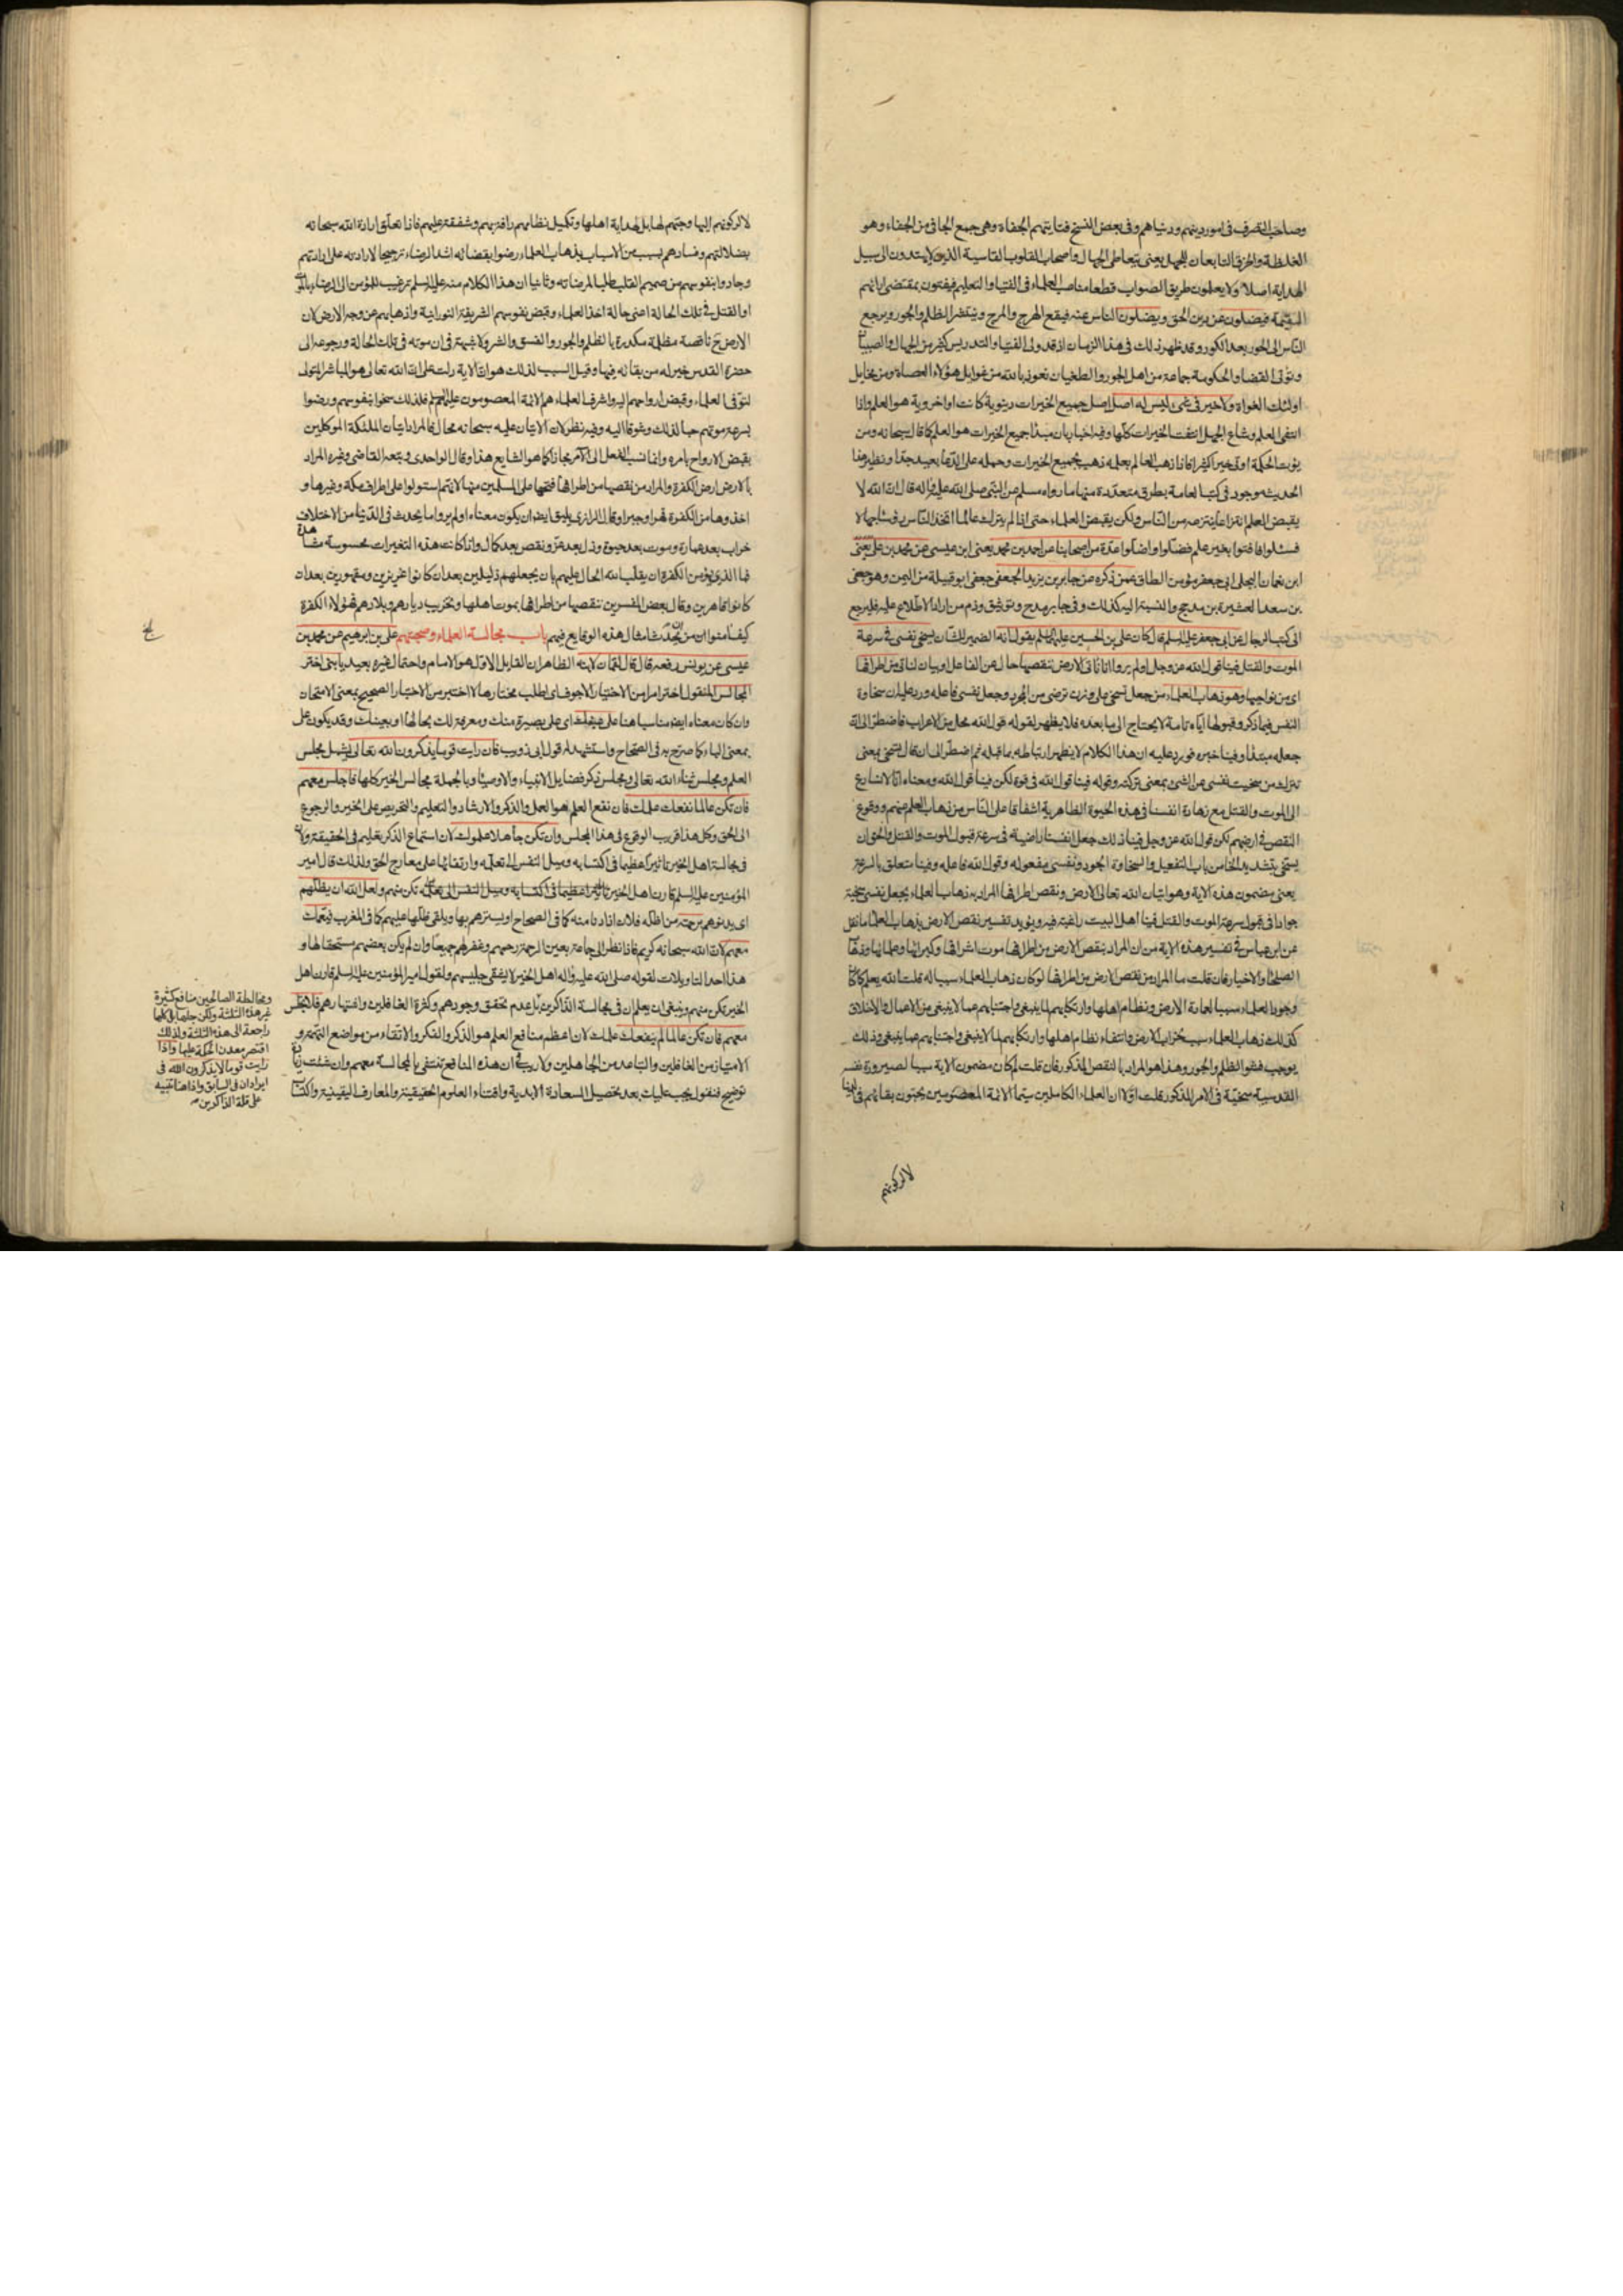 وصاحب التصرف فى امور دينهم ودنياهم وفى بعض النسخ فتايتهم الجفاة وهى جمع الجافى من الجفاء وهو
الغلظة والخرق التابعان للجهل يعنى يتعاطى الجهال واصحاب القلوب القاسية الذين لا يهتدون الى سبيل
الهداية اصلا ولا يعلمون طريق الصواب قطعا مناصب العلماء فى الفتيا والتعليم فيفتون بمقتضى ارائهم
السقيمة فيضلون عن دين الحق ويضلون الناس عنه فيقع الهرج والمرج وينتشر الظلم والجور ويرجع
الناس الى الحور بعد الكور وقد ظهر ذلك فى هذا الزمان اذ قد ولى الفتيا والتدريس كثير من الجهال والصبيان
وتولى القضا والحكومة جماعة من اهل الجور والطغيان نعوذ بالله من غوايل هؤلاء العصاة ومن مخايل
اولئك الغواة ولا خير فى شئ ليس له اصل اصل جميع الخيرات دنيوية كانت او اخروية هو العلم واذا
انتفى العلم وشاع الجهل انتفت الخيرات كلها وفيه اخبار بان مبدأ جميع الخيرات هو العلم كما قال سبحانه ومن
يؤت الحكمة اوتى خيرا كثيرا فاذا ذهب العالم بعلمه ذهب بجميع الخيرات وحمله على الدعا بعيد جدا ونظير هذا
الحديث موجود فى كتب العامة بطرق متعددة منها ما رواه مسلم عن النبى صلى الله عليه واله قال ان الله لا
يقبض العلم انتزاعا ينتزعه من الناس ولكن يقبض العلماء حتى اذا لم يترك عالما اتخذ الناس رؤسا جهالا
فسئلوا فافتوا بغير علم فضلوا واضلوا عدة من اصحابنا عن احمد بن محمد يعنى ابن عيسى عن محمد بن على يعنى
ابن نعمان البجلى ابى جعفر مؤمن الطاق عمن ذكره عن جابر بن يزيد الجعفى جعفى ابو قبيلة من اليمن وهو جعفى
بن سعد العشيرة بن مذحج والنسبة اليه كذلك وفى جابر مدح وتوثيق وذم من اراد الاطلاع عليه فليرجع
الى كتب الرجال عن ابى جعفر عليه السلم قال كان على بن الحسين عليهما السلم يقول انه الضمير للشان يسخى نفسى فى سرعة
الموت والقتل فينا قول الله عز وجل اولم يروا انا ناتى الارض ننقصها حال عن الفاعل او بيان لناتى من اطرافها
اى من نواحيها وهو ذهاب العلماء من جعل تسخى على وزن ترضى من المجرد وجعل نفسى فاعله ورد عليه ان سخاوة
النفس فيما ذكر وقبولها اياه تامة لا يحتاج الى ما بعده فلا يظهر لقوله قول الله محل من الاعراب فاضطر الى ان
جعله مبتدأ وفينا خبره فورد عليه ان هذا الكلام لا يظهر ارتباطه بما قبله ثم اضطر الى ان قال تسخى بمعنى
تترك من سخيت نفسى عن الشئ بمعنى تركته وقوله فينا قول الله فى قوة لكن فينا قول الله ومعناه انا لا نسارع
الى الموت والقتل مع زهادة انفسنا فى هذه الحيوة الظاهرية اشفاقا على الناس من ذهاب العلم عنهم ووقوع
النقص فى ارضهم لكن قول الله عز وجل فينا ذلك جعل انفسنا راضية فى سرعة قبول الموت والقتل والحق ان
يسخى بتشديد الخاء من باب التفعيل والسخاوة الجود ونفسى مفعوله وقول الله فاعله وفينا متعلق بالسرعة
يعنى مضمون هذه الاية وهو اتيان الله تعالى الارض ونقص اطرافها المراد به ذهاب العلماء يجعل نفسى سخية
جوادا فى قبول سرعة الموت والقتل فينا اهل البيت راغبة فيه ويؤيد تفسير نقص الارض بذهاب العلماء ما نقل
عن ابن عباس فى تفسير هذه الاية من ان المراد بنقص الارض من اطرافها موت اشرافها وكبرائها وعلمائها وذهاب
الصلحاء والاخيار فان قلت ما المراد من نقص الارض من اطرافها لو كان ذهاب العلماء سببا له قلت الله يعلم كما كان
وجود العلماء سببا لعمارة الارض ونظام اهلها وارتكابهم لما ينبغى واجتنابهم عما لا ينبغى من الاعمال والاخلاق
كذلك ذهاب العلماء سبب لخراب الارض وانتفاء نظام اهلها وارتكابهم لما لا ينبغى واجتنابهم عما ينبغى وذلك
يوجب فشو الظلم والجور وهذا هو المراد بالنقص المذكور فان قلت لم كان مضمون الاية سببا لصيرورة نفسه
القدسية سخية فى الامر المذكور قلت اولا ان العلماء الكاملين سيما الائمة المعصومين يحبون بقائهم فى الدنيا
لا لركونهم
لا لركونهم اليها وحبهم لها بل لهداية اهلها وتكميل نظامهم رافة بهم وشفقة عليهم فاذا تعلق ارادة الله سبحانه
بضلالتهم وفسادهم بسبب من الاسباب بذهاب العلماء رضوا بقضائه اشد الرضاء ترجيحا لارادته على ارادتهم
وجادوا بنفوسهم من صميم القلب طلبا لمرضاته وثانيا ان هذا الكلام منه عليه السلم ترغيب للمؤمن الى الرضاء بالموت
او القتل فى تلك الحالة اعنى حالة اخذ العلماء وقبض نفوسهم الشريفة النورانية واذهابهم عن وجه الارض لان
الارض ح ناقصة مظلمة مكدرة بالظلم والجور والفسق والشر ولا شبهة فى ان موته فى تلك الحالة ورجوعه الى
حضرة القدس خير له من بقائه فيها وقيل السبب لذلك هو ان الاية دلت على ان الله تعالى هو المباشر المتولى
لتوفى العلماء وقبض ارواحهم اليه واشرف العلماء هم الائمة المعصومون عليهم السلم فلذلك سخوا بنفوسهم ورضوا
بسرعة موتهم حبا لذلك وشوقا اليه وفيه نظر لان الاتيان عليه سبحانه محال فالمراد اتيان الملئكة الموكلين
بقبض الارواح بامره وانما نسب الفعل الى الآمر مجازا كما هو الشايع هذا وقال الواحدى وتبعه القاضى وغيره المراد
بالارض ارض الكفرة والمراد من نقصها من اطرافها فتحها على المسلمين منها لانهم استولوا على اطراف مكة وغيرها و
اخذوها من الكفرة قهرا وجبرا وقال الرازى يليق ايضا ان يكون معناه اولم يروا ما يحدث فى الدنيا من الاختلاف
خراب بعد عمارة وموت بعد حيوة وذل بعد عز ونقص بعد كمال واذا كانت هذه التغيرات محسوسة مشاهدة
فما الذى يؤمن الكفرة ان يقلب الله الحال عليهم بان يجعلهم ذليلين بعد ان كانوا عزيزين ومقهورين بعد ان
كانوا قاهرين وقال بعض المفسرين ننقصها من اطرافها بموت اهلها وتخريب ديارهم وبلادهم فهؤلاء الكفرة
كيف امنوا من ان يحدث امثال هذه الوقايع فيهم باب مجالسة العلماء وصحبتهم على بن ابرهيم عن محمد بن
عيسى عن يونس رفعه قال قال لقمان لابنه الظاهر ان القايل الاول هو الامام واحتمال غيره بعيد يا بنى اختر
المجالس المنقول اختر امر من الاختيار الاجوف اى اطلب مختارها لا اختبر من الاختبار الصحيح بمعنى الامتحان
وان كان معناه ايضا مناسبا هنا على عينك اى على بصيرة منك ومعرفة لك بحالها او بعينك وقد يكون على
بمعنى الباء كما صرح به فى الصحاح واستشهد له قول ابى ذويب فان رايت قوما يذكرون الله تعالى يشمل مجلس
العلم ومجلس ثناء الله تعالى ومجلس ذكر فضايل الانبياء والاوصياء وبالجملة مجالس الخير كلها فاجلس معهم
فان تكن عالما نفعك علمك فان نفع العلم هو العمل والذكر والارشاد والتعليم والتحريص على الخير والرجوع
الى الحق وكل هذا قريب الوقوع فى هذا المجلس وان تكن جاهلا علموك لان استماع الذكر تعليم فى الحقيقة ولان
فى مجالسة اهل الخير تاثيرا عظيما فى اكتسابه وميل النفس الى تعلمه وارتقائها على معارج الحق ولذلك قال امير
المؤمنين عليه السلم قارن اهل الخير تكن منهم ولعل الله ان يظلهم
اى يدنوهم برحمته من اظله فلان اذا دنا منه كما فى الصحاح او يسترهم بها ويلقى ظلها عليهم كما فى المغرب فيعمك
معهم لان الله سبحانه كريم فاذا نظر الى جماعة بعين الرحمة رحمهم وغفر لهم جميعا وان لم يكن بعضهم مستحقا لها و
هذا احد التاويلات لقوله صلى الله عليه واله اهل الخير لا يشقى جليسهم ولقول امير المؤمنين عليه السلم قارن اهل
الخير تكن منهم وينبغى ان يعلم ان فى مجالسة الذاكرين بل عدم تحقق وجودهم وكثرة الغافلين واشتهارهم فلا تجلس
معهم فان تكن عالما لم ينفعك علمك لان اعظم منافع العلم هو الذكر والفكر والاتقاء من مواضع التهمة و
الامتياز من الغافلين والتباعد من الجاهلين ولا ريب فى ان هذه المنافع تنتفى بالمجالسة معهم وان شئت زيادة
توضيح فنقول يجب عليك بعد تحصيل السعادة الابدية واقتناء العلوم الحقيقية والمعارف اليقينية واكتساب
ومخالطة الصالحين منافع كثيرة
غير هذه الثلثة ولكن جلها بل كلها
راجعة الى هذه الثلثة ولذلك
اقتصر معدن الحكمة عليها واذا
رايت قوما لا يذكرون الله فى
ايراد ان فى السابق واذا هنا تنبيه
على قلة الذاكرين منه